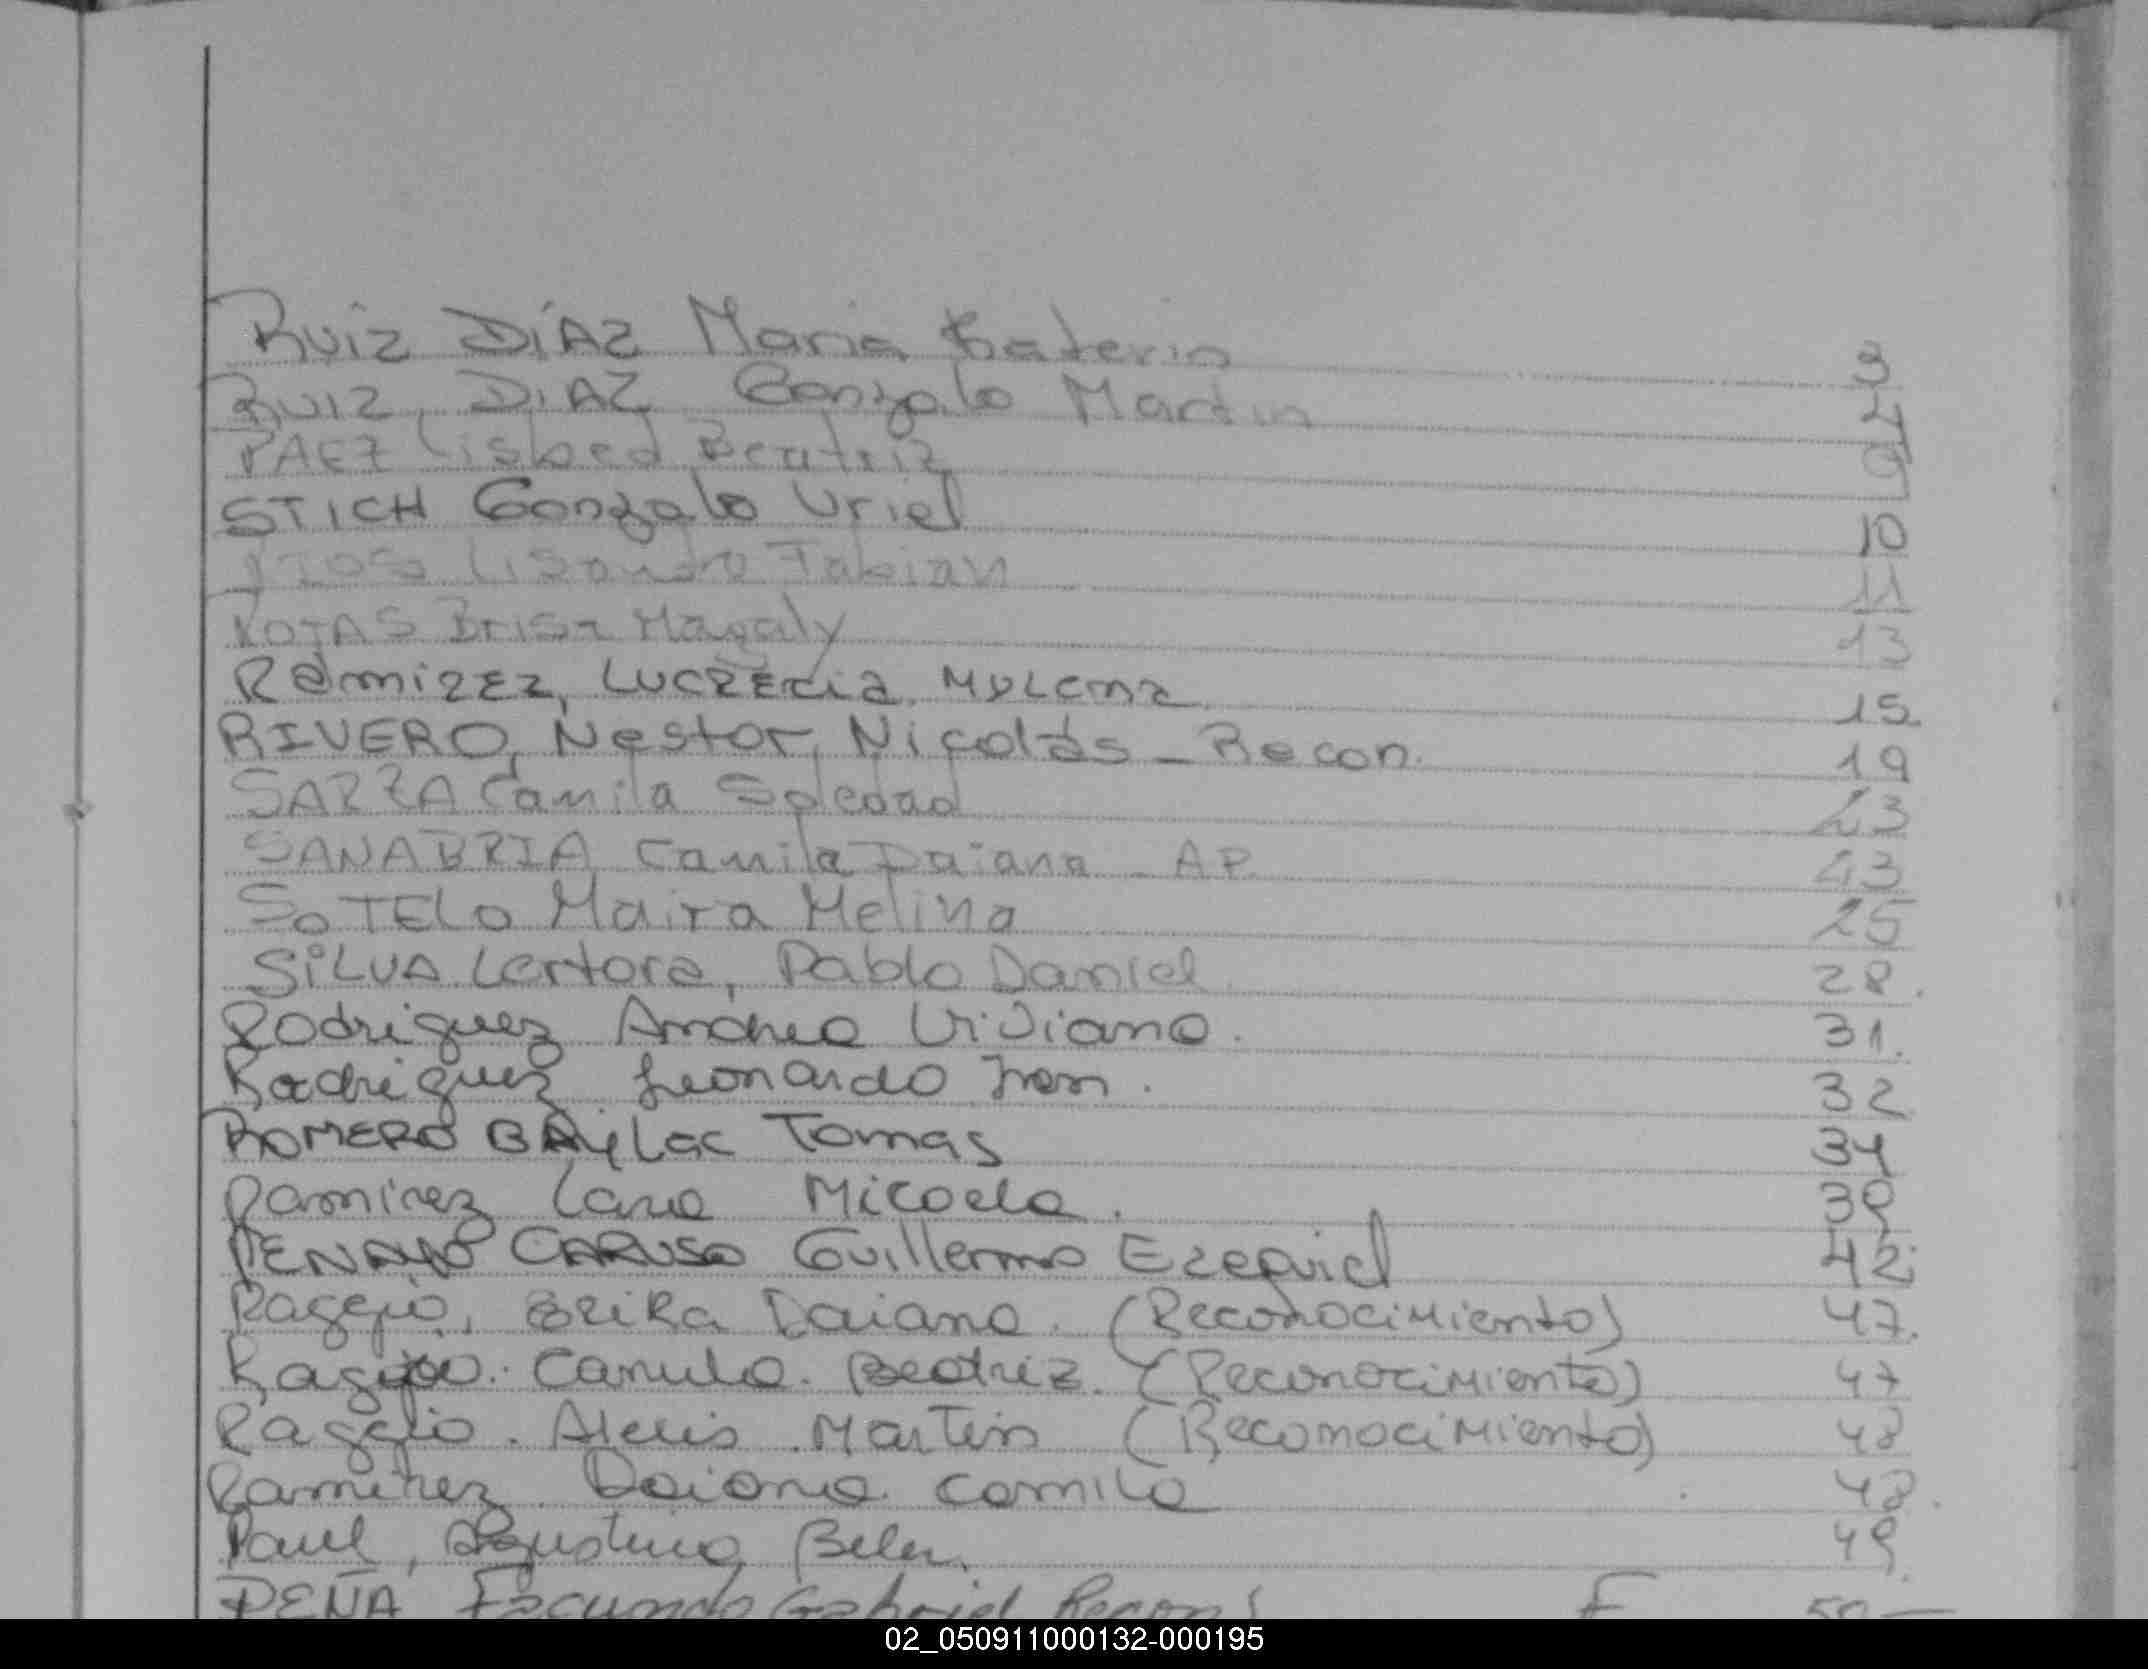 RUIZ DÍAZ María Katerin 3
RUIZ DIAZ Gonzalo Martin 4
PAEZ Lisbed Beatriz 9
STICH Gonzalo Uriel 10
Lisandro Fabian 11
ROJAS Brisa Magaly 13
Ramirez, Lucrecia Mylena 15
RIVERO, Nestor, Nicolás - Recon. 19
SARZA Camila Soledad 23
SANABRIA Camila Daiana - AP 23
SOTELO Maira Melina 25
SILVA Lertora, Pablo Daniel 28.
Rodriguez Andrea Viviana. 31.
Rodriguez Leonardo Ivan. 32
ROMERO BAYLAC Tomas 34
Ramirez Lara Micaela. 39
PENAYO CARUSO Guillermo Ezequiel 42
Raggio, Erika Daiana. (Reconocimiento) 47.
Raggio. Camila. Beatriz. (Reconocimiento) 47
Raggio. Alexis Martin (Reconocimiento) 48
Ramirez Daiana Camila 48.
Paul, Agustina Belen. 49.
PEÑA Facundo Gabriel 50
02_050911000132-000195